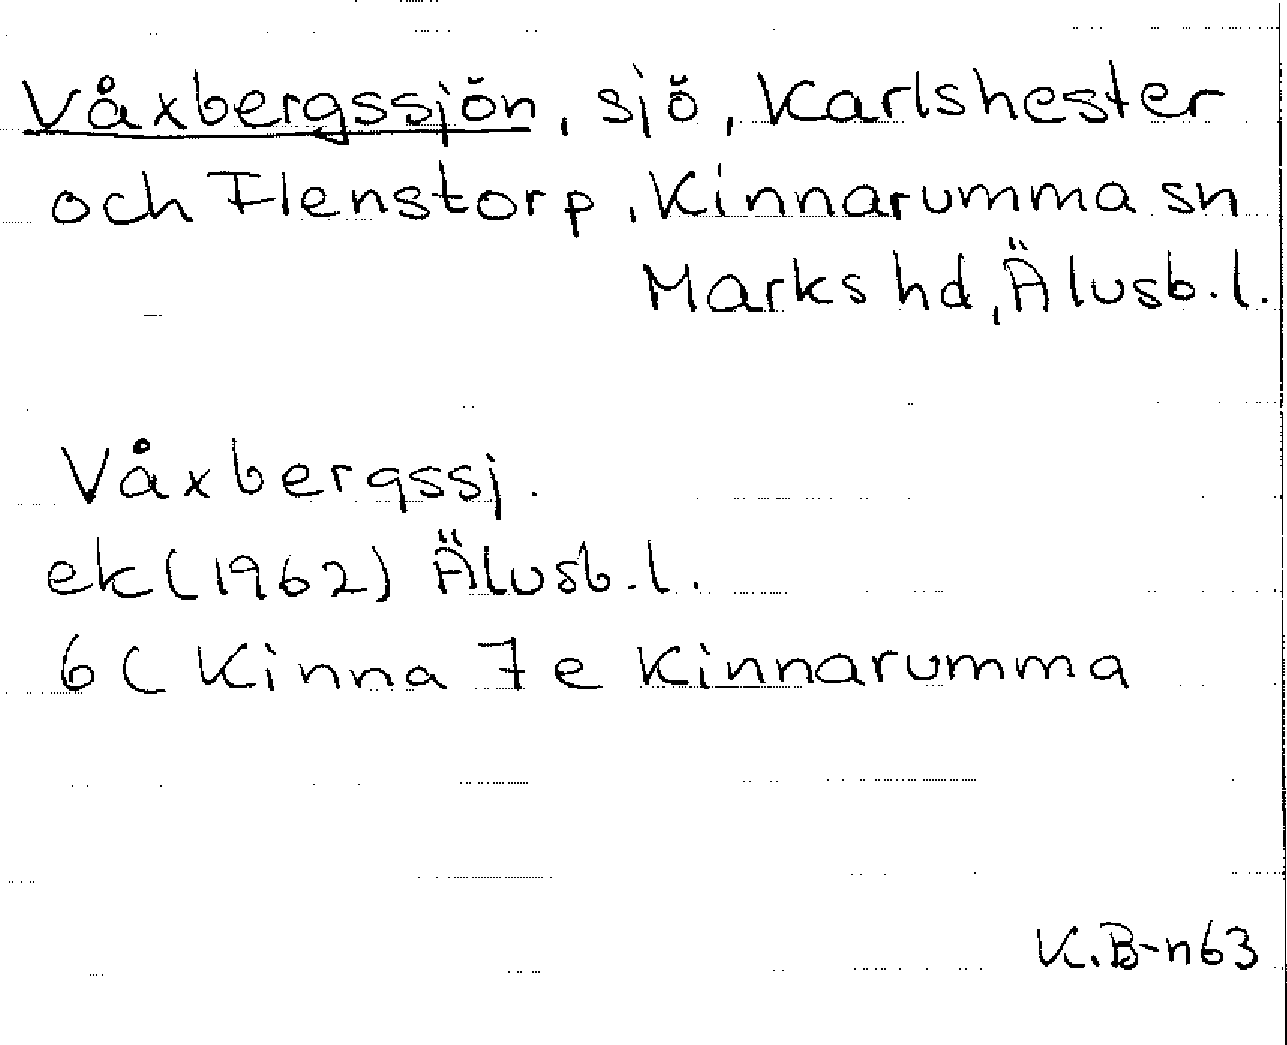 Våxbergssjön, sjö, Karlshester
och Flenstorp, Kinnarumma sn
Marks hd, Älvsb. l.
Våxbergssj.
ek (1962) Älvsb. l.
6C Kinna 7e Kinnarumma
K.B-n63